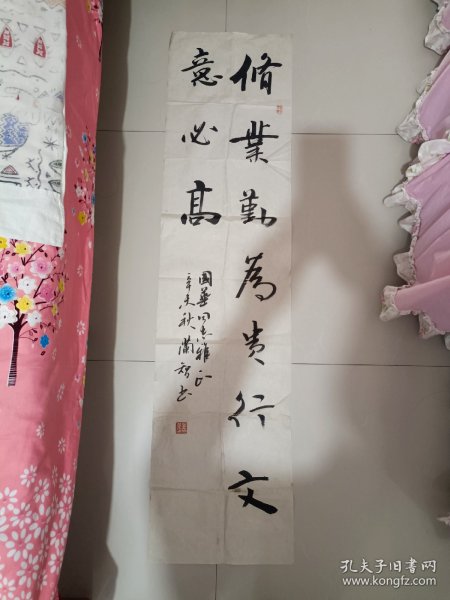 脩業勤為貴行文
意必高
國華同志雅正
辛未秋蘭智书
孔夫子旧书网
www.kongfz.com